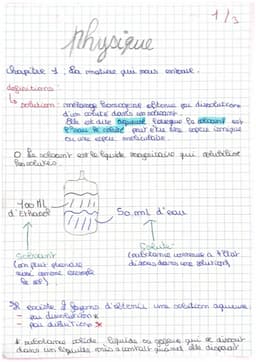 1/3
physique
Chapitre 1 : La matière qui nous entoure.
définitions :
↳ solution : mélange homogène obtenu par dissolution
d'un soluté dans un solvant.
Elle est dite aqueuse lorsque le solvant est
l'eau. le soluté peut être une espèce ionique
ou une espèce moléculaire.
O Le solvant est le liquide majoritaire qui solubilise
les solutés.
700 ml
d'Ethanol
50 ml d'eau
Solvant
(on peut prendre
aussi comme exemple
le sel)
Soluté
(substance
dissous dans une solution)
Il existe 2 façons d'obtenir une solution aqueuse
- par dissolution *
- par dilution *
* substance solide, liquide ou gazeux qui se dissout
dans un liquide